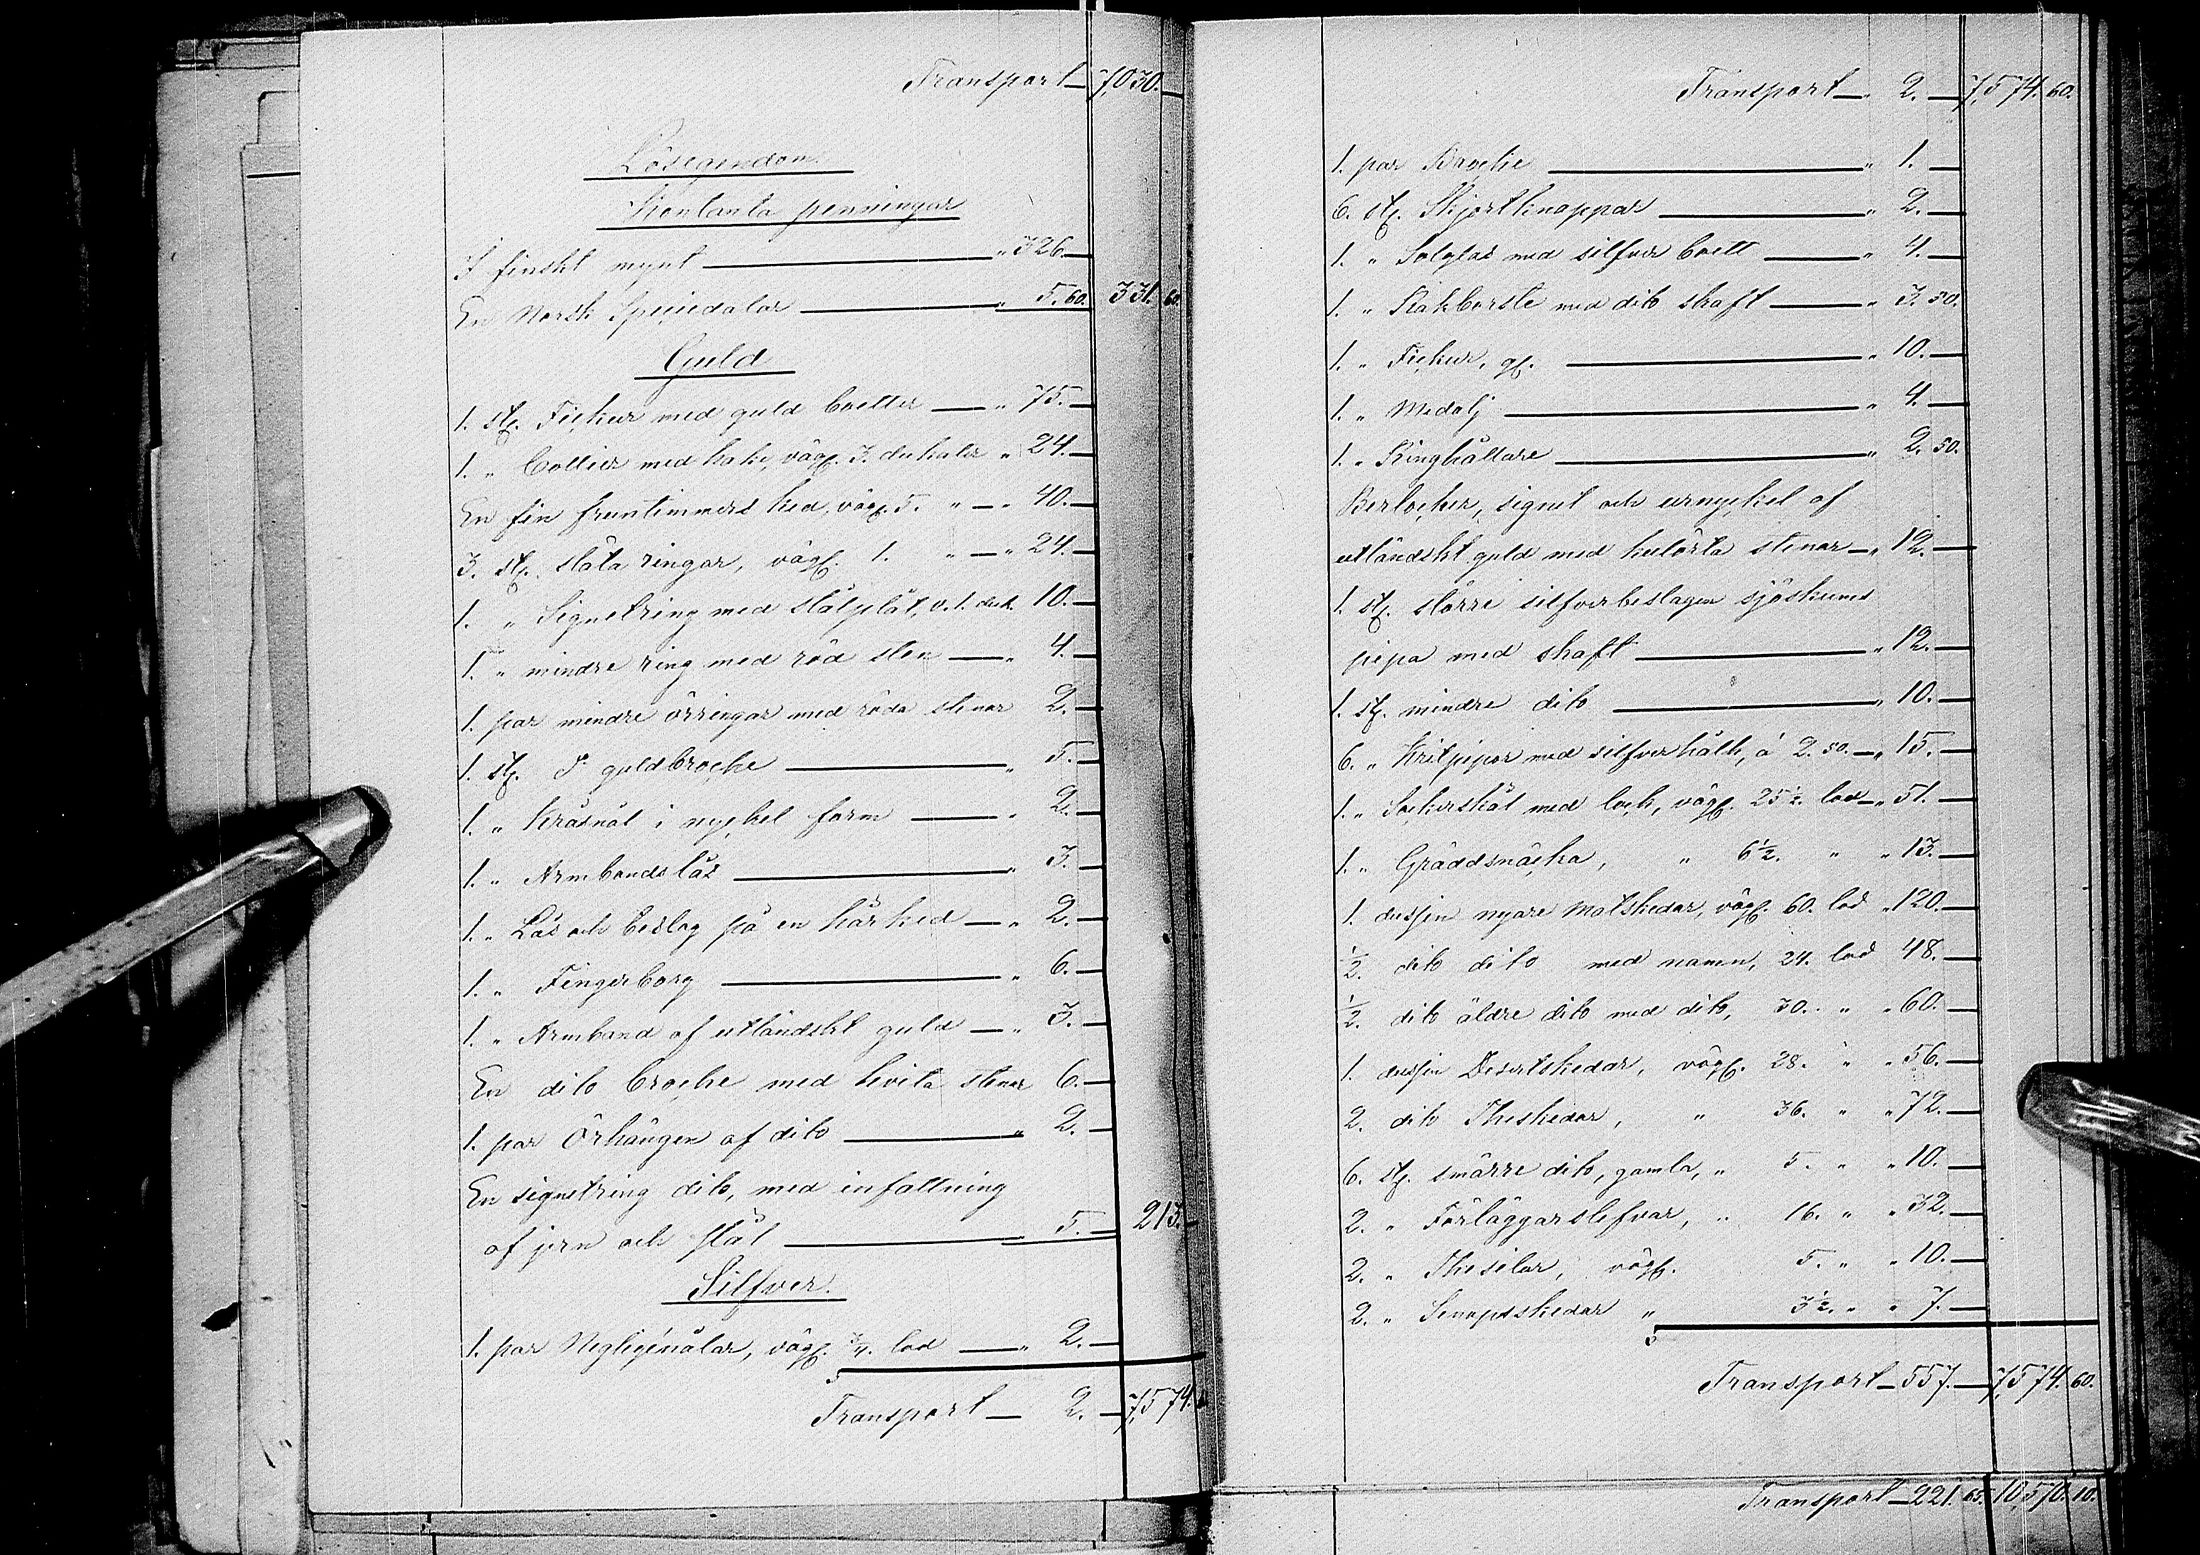 Transport — 7,030. —
Lösegendom.
Kontanta penningar
I finskt mynt — " 326. —
En Norsk Speciedalar — " 5. 60. 331. 60
Guld
1. st. Fickur med guld boetter — " 75. —
1. " Collier med hake, väg. 3. dukater " 24. —
En fin fruntimmers ked, väg. 5. " — " 40. —
3. st. släta ringar, väg. 1. " — " 24. —
1. " Signetring med slät plåt, v. 1. duk. 10. —
1. " mindre ring med röd sten — " 4. —
1. par mindre örringar med röda stenar 2. —
1. st. guldbroche — " 5. —
1. " Kråsnål i nyckel form — " 2. —
1. " Armbandslås — " 3. —
1. " Lås och beslag på en hårked — " 2. —
1. " Fingerborg — " 6. —
1. " Armband af utländskt guld — " 3. —
En dito broche med hvita stenar 6. —
1. par Örhängen af dito — " 2. —
En signetring dito, med infattning
af jern och stål — " 5. — 213. —
Silfver.
1. par Negligénålar, väg. 3/4. lod — " 2. —
Transport — 2. — 7,574.
Transport — " 2. — 7,574. 60.
1. par — " 1. —
6. st. Skjortknappar — " 2. —
1. " Solglas med silfver boett — " 4. —
1. " Rakborste med dito skaft — " 3. 50.
1. " Fickur, gl. — " 10. —
1. " Medalj — " 4. —
1. " Ringhållare — " 2. 50.
Berlocker, signet och urnyckel af
utländskt guld med kulörta stenar — " 12. —
1. st. större silfverbeslagen sjöskums
pipa med skaft — " 12. —
1. st. mindre dito — " 10. —
6. " Kritpipor med silfverhålk, á 2. 50. — " 15. —
1. " Sockerskål med lock, väg. 25 1/2. lod — " 51. —
1. " Gräddsnäcka, " 6 1/2. " " 13. —
1. dussin nyare Matskedar, väg. 60. lod " 120. —
1/2. dito dito med namn, 24. lod 48. —
1/2. dito äldre dito med dito, 30. " " 60. —
1. dussin Desertskedar, väg. 28. " " 56. —
2. dito Theskedar, " 36. " " 72. —
6. st. smärre dito, gamla, " 5. " " 10. —
2. " Förläggarslefvar, " 16. " " 32. —
2. " Thesilar, väg. 5. " " 10. —
2. " Senapsskedar " 3 1/2. " " 7. —
Transport — 557. — 7,574. 60.
Transport — 221. 65. 10,570. 10.